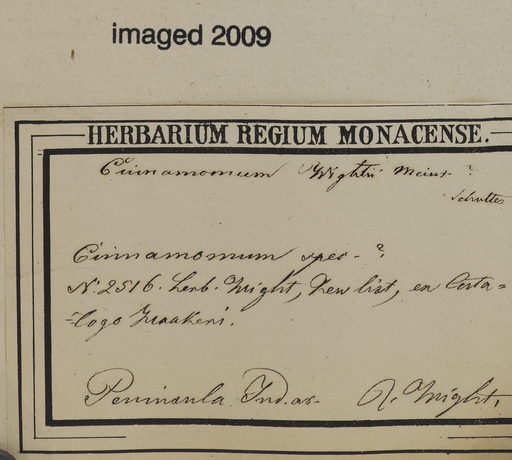 imaged 2009
HERBARIUM REGIUM MONACENSE.
Cinnamomum Wightii Meisn. ?
Schultes
Cinnamomum spec. ?,
N. 2516. herb. Wight, Kew list, en Cata=
=logo
Peninsula Ind. or. R. Wight,